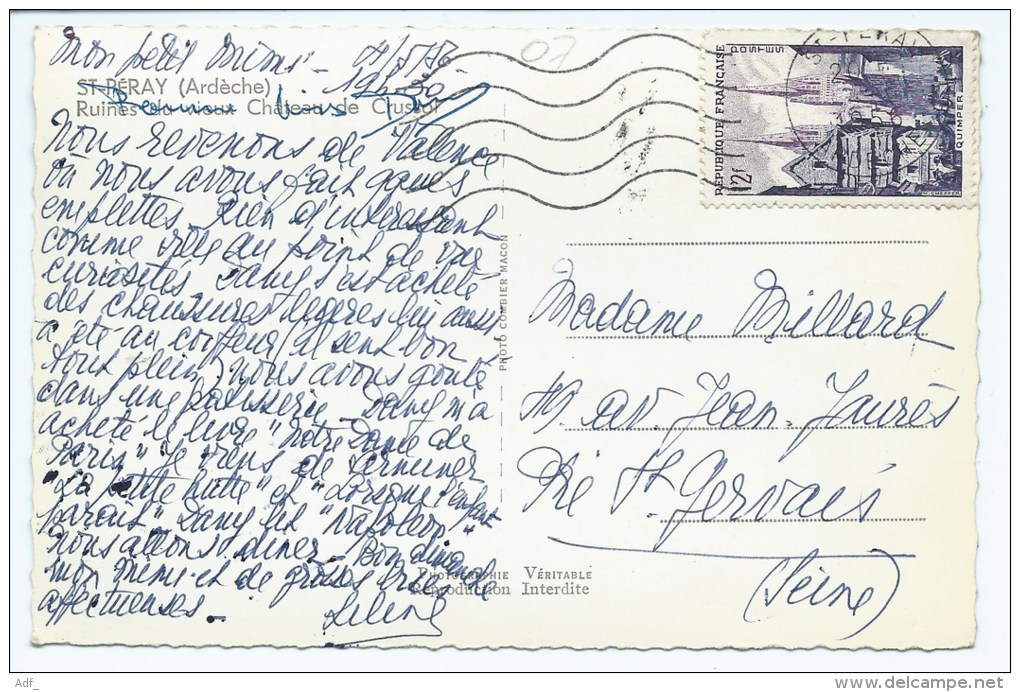 Mon petit Mimi -
19h30
ST-PÉRAY (Ardèche)
Ruines du vieux Château de Crussol
Nous revenons de Valence
où nous avons fait qques
emplettes rien d'intéressant
comme ville au point de vue
curiosités Dany s'est acheté
des chaussures légères lui aussi
a été au coiffeur (il sent bon
tout plein) nous avons goûté
dans une pâtisserie - Dany m'a
acheté le livre "Notre Dame de
Paris" Je viens de terminer
"La petite" et "Lorsque l'enfant
paraît" Dany lit "Napoléon"
Nous allons dîner - Bon dimanche
mon Mimi et de grosses bises
affectueuses -
07
PHOTO COMBIER MACON
PHOTOGRAPHIE VÉRITABLE
Reproduction Interdite
POSTES
RÉPUBLIQUE FRANÇAISE
12F
QUIMPER
ST-PÉRAY
Madame Millard
av. Jean-Jaurès
Pré St Gervais
(Seine)
Adf_
www.delcampe.net